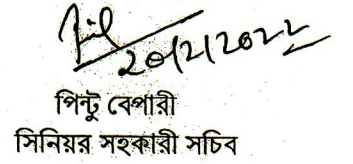 20/2/2022
পিন্টু বেপারী
সিনিয়র সহকারী সচিব